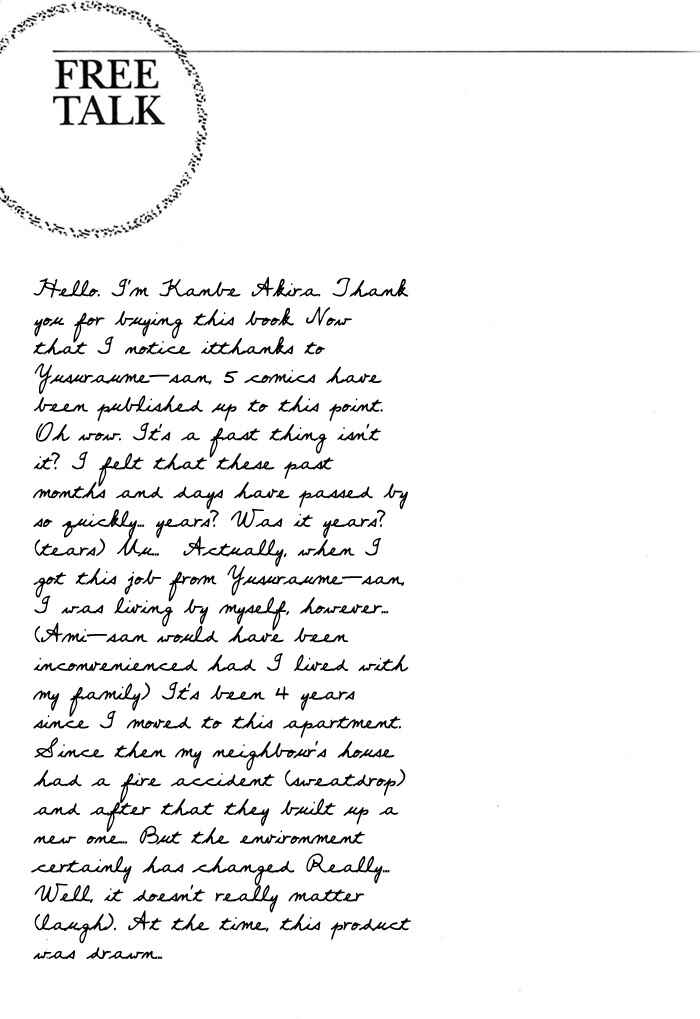 FREE
TALK
Hello. I'm Kanbe Akira. Thank
you for buying this book Now
that I notice itthanks to
Yusuraume—san, 5 comics have
been published up to this point.
Oh wow. It's a fast thing isn't
it? I felt that these past
months and days have passed by
so quickly... years? Was it years?
(tears) Uu... Actually, when I
got this job from Yusuraume—san,
I was living by myself, however...
(Ami—san would have been
inconvenienced had I lived with
my family) It's been 4 years
since I moved to this apartment.
Since then my neighbour's house
had a fire accident (sweatdrop)
and after that they built up a
new one... But the environment
certainly has changed Really...
Well, it doesn't really matter
(laugh). At the time, this product
was drawn...